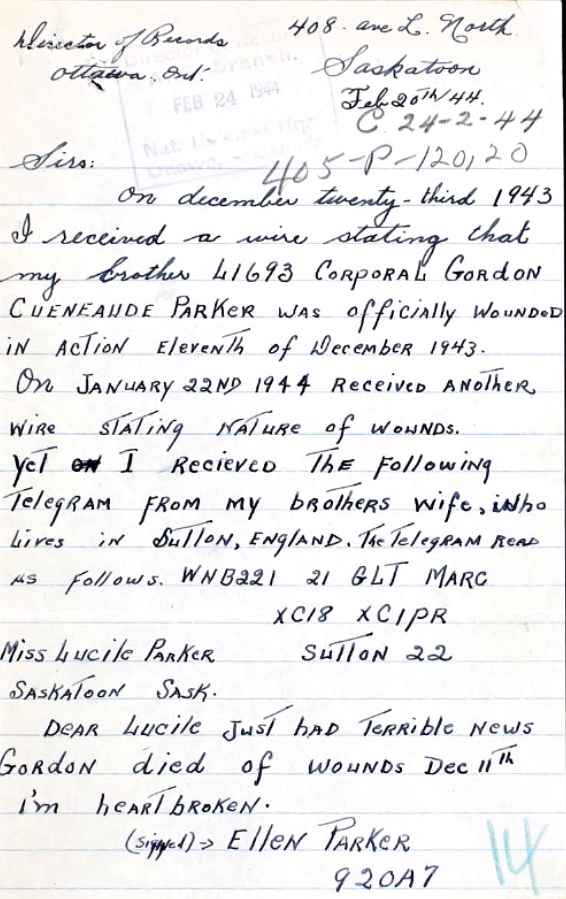 408 - ave L. North.
Director of Records
Ottawa. Ont.
Saskatoon
Feb 20th/44.
FEB 24 1944
C. 24-2-44
405-P-120,120
Sirs:
On december twenty-third 1943
I received a wire stating that
my brother L1693 CORPORAL GORDON
CUENEAUDE PARKER WAS officially WOUNDED
IN ACTION Eleventh of December 1943.
On JANUARY 22ND 1944 RECEIVED ANOTHER
WIRE STATING NATURE of WOUNDS.
YET I RECIEVED THE Following
TELEGRAM FROM my brothers wife, who
Lives in SUTTON, ENGLAND. The Telegram READ
AS Follows. WNB221 21 GLT MARC
XC18 XC1PR
MISS LUCILE PARKER SUTTON 22
SASKATOON SASK.
DEAR LUCILE JUST HAD TERRIBLE NEWS
GORDON died of WOUNDS DEC 11th
i'm heARTbROKEN.
(signed)-> Ellen PARKER
920A7
14